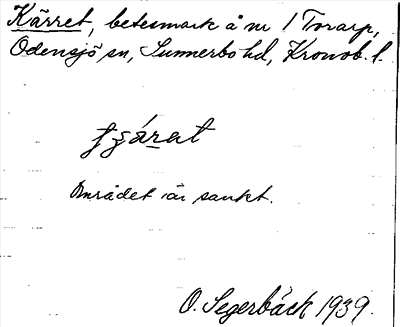 Kärret, betesmark å nr 1 Torarp,
Odensjö sn, Sunnerbo hd, Kronob. l.
Området är sankt.
O. Segerbäck 1939.